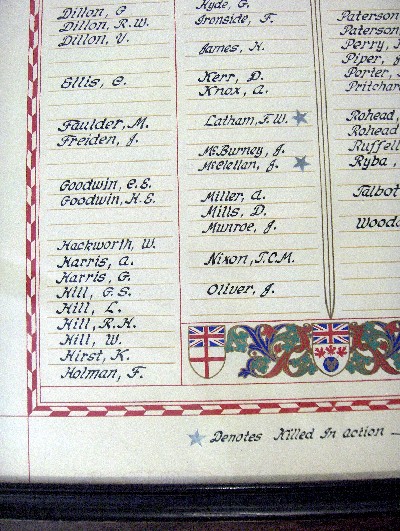 Dillon, G
Dillon, R.W.
Dillon, V.
Ellis, C.
Faulder, M.
Freiden, J.
Goodwin, C.E.
Goodwin, H.E.
Hackworth, W.
Harris, A.
Harris, G.
Hill, G.S.
Hill, L.
Hill, R.H.
Hill, W.
Hirst, K.
Holman, F.
Hyde, G.
Ironside, F.
James, H.
Kerr, D.
Knox, A.
Latham, F.W.
McBurney, J.
McClellan, J.
Miller, A.
Mills, D.
Munroe, J.
Nixon, T.C.M.
Oliver, J.
Paterson
Paterson
Perry,
Piper,
Porter,
Pritchar
Rohead,
Rohead
Ruffell
Ryba,
Talbot
Woodc
Denotes Killed In action –